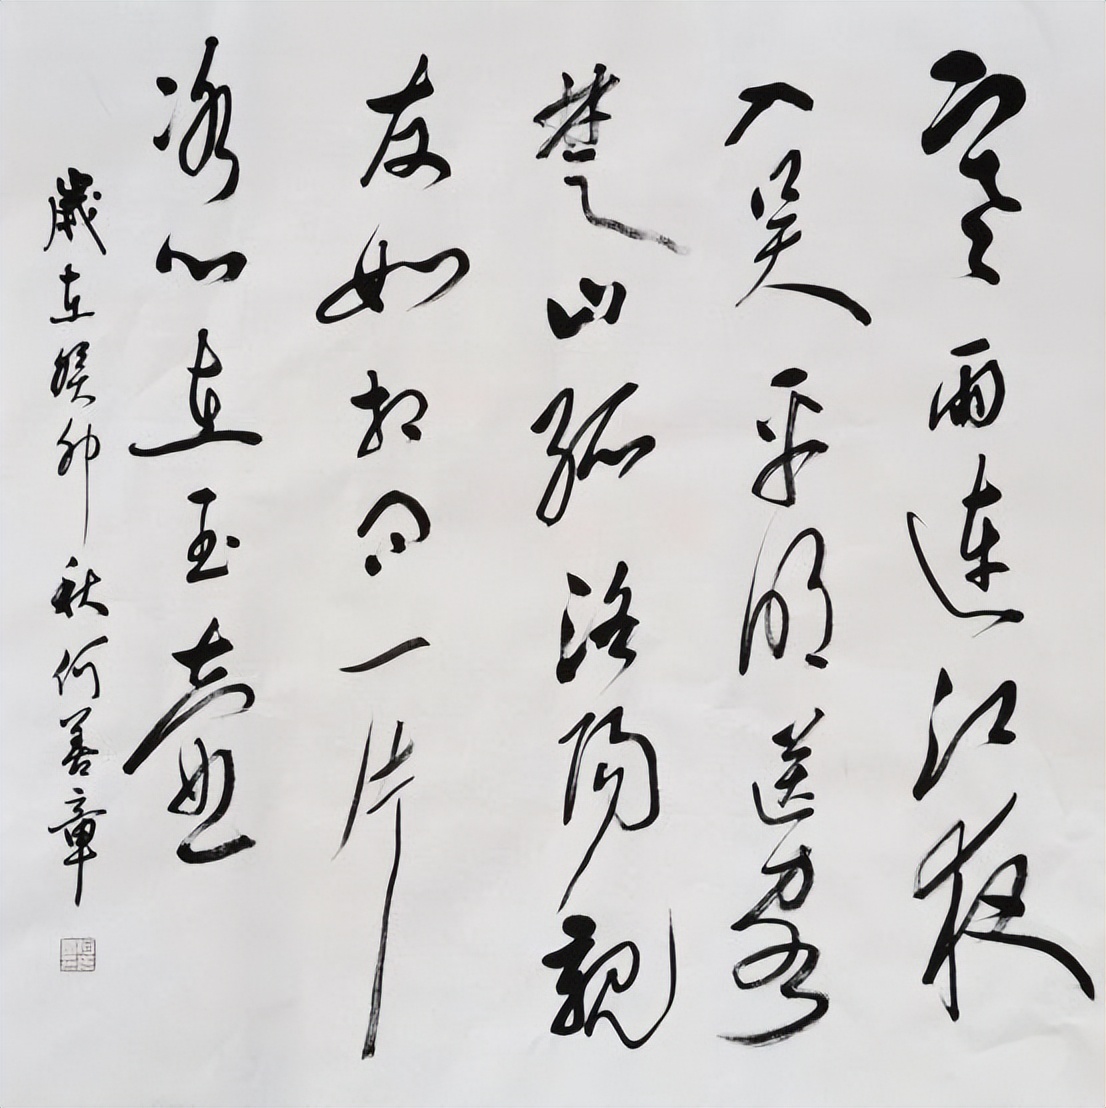 寒雨連江夜
入吴平明送客
楚山孤洛陽親
友如相問一片
冰心在玉壺
歲在癸卯秋何善章